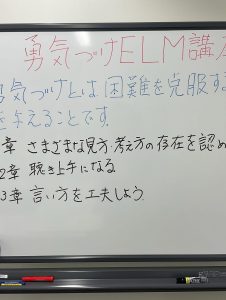 勇気づけELM講
気づけとは困難を克服する
を与えることです。
章 さまざまな見方・考え方の存在を認め
2章 聴き上手になる
3章 言い方を工夫しよう